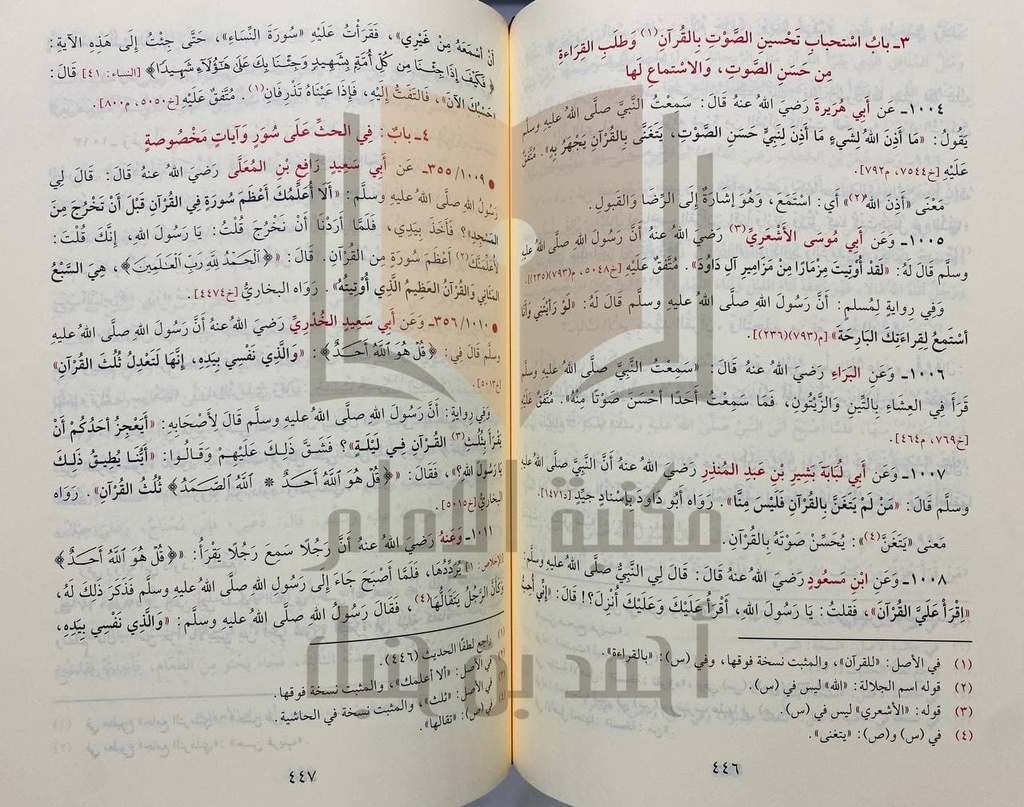 ٣ـ بابُ اسْتحبابِ تَحْسينِ الصَّوْتِ بالقُرآنِ(١) وَطلَبِ القِرَاءةِ
مِن حَسَنِ الصَّوتِ، وَالاسْتماعِ لَها
١٠٠٤ـ عَن أَبي هُرَيرةَ رَضِيَ اللهُ عنهُ قَالَ: سَمعْتُ النَّبيَّ صلَّى اللهُ عليهِ وسلَّم
يَقُولُ: «مَا أَذِنَ اللهُ لشَيءٍ مَا أَذِنَ لنَبيٍّ حَسَنِ الصَّوْتِ، يَتَغَنَّى بِالقُرْآنِ يَجْهَرُ بِهِ». مُتَّفَقٌ
عَلَيْهِ [خ٧٥٤٤، م٧٩٢].
مَعْنَى «أَذِنَ اللهُ(٢)» أي: اسْتَمَعَ، وَهُوَ إشَارَةٌ إلى الرِّضَا وَالقَبولِ.
١٠٠٥ـ وَعَن أَبي مُوسَى الأَشْعَريِّ(٣) رَضيَ اللهُ عنهُ أنَّ رَسُولَ اللهِ صلَّى اللهُ عليهِ
وسلَّم قَالَ لَهُ: «لَقَدْ أُوتِيتَ مِزْمَارًا مِنْ مَزَامِيرِ آلِ دَاوُدَ». مُتَّفقٌ عَلَيْهِ [خ٥٠٤٨، م(٧٩٣)(٢٣٥)].
وَفِي رِوايةٍ لمُسلمٍ: أنَّ رَسُولَ اللهِ صلَّى اللهُ عليهِ وسلَّم قَالَ لَهُ: «لَوْ رَأيْتَنِي وَأنَا
أسْتَمِعُ لِقِراءَتِكَ البَارِحَةَ» [م(٧٩٣)(٢٣٦)].
١٠٠٦ـ وَعَنِ البَرَاءِ رَضيَ اللهُ عنهُ قَالَ: سَمَعْتُ النَّبيَّ صلَّى اللهُ عليهِ وسلَّم
قَرَأَ في العِشَاءِ بالتِّينِ وَالزَّيْتُونِ، فَمَا سَمِعْتُ أحَدًا أحْسَنَ صَوْتًا مِنْهُ. مُتَّفَقٌ عَلَيْهِ
[خ٧٦٩، م٤٦٤].
١٠٠٧ـ وَعَن أَبي لُبَابَةَ بَشيرِ بْنِ عَبدِ المُنذِرِ رَضيَ اللهُ عنهُ أنَّ النَّبيَّ صلَّى اللهُ عليهِ
وسلَّم قَالَ: «مَنْ لَمْ يَتَغَنَّ بِالقُرْآنِ فَلَيْسَ مِنَّا». رَوَاه أبُو دَاودَ بإسْنادٍ جيِّدٍ [د١٤٧١].
مَعنى «يَتَغَنَّ(٤)»: يُحَسِّنُ صَوْتَهُ بِالقُرْآنِ.
١٠٠٨ـ وَعَنِ ابْنِ مَسعُودٍ رَضيَ اللهُ عنهُ قَالَ: قَالَ لِي النَّبيُّ صلَّى اللهُ عليهِ وسلَّم:
«اقْرَأْ عَلَيَّ القُرْآنَ»، فَقلتُ: يَا رَسُولَ اللهِ، أقْرَأُ عَلَيْكَ وَعَلَيْكَ أُنْزِلَ؟! قَالَ: «إنِّي أُحِبُّ
(١) في الأصل: «للقرآن»، والمثبت نسخة فوقها، وفي (س): «بالقراءة».
(٢) قوله اسم الجلالة: «الله» ليس في (س).
(٣) قوله: «الأشعري» ليس في (س).
(٤) في (س) و(ص): «يتغنى».
٤٤٦
أنْ أسْمَعَهُ مِنْ غَيْرِي»، فَقَرَأْتُ عَلَيْهِ «سُورَةَ النِّسَاءِ»، حَتَّى جِئْتُ إلَى هَذِهِ الآيَةِ:
﴿فَكَيْفَ إِذَا جِئْنَا مِن كُلِّ أُمَّةٍ بِشَهِيدٍ وَجِئْنَا بِكَ عَلَى هَؤُلَاءِ شَهِيدًا﴾ [النساء: ٤١] قَالَ:
«حَسْبُكَ الآنَ»، فَالتَفَتُّ إلَيْهِ، فَإذَا عَيْنَاهُ تَذْرِفَانِ(١). مُتَّفَقٌ عَلَيْهِ [خ٥٠٥٠، م٨٠٠].
٤ـ بابٌ: فِي الحثِّ عَلَى سُوَرٍ وَآيَاتٍ مَخْصُوصةٍ
● ٣٥٥/١٠٠٩ـ عَن أَبي سَعِيدٍ رَافِعِ بْنِ المُعَلَّى رَضيَ اللهُ عنهُ قَالَ: قَالَ لِي
رَسُولُ اللهِ صلَّى اللهُ عليهِ وسلَّم: «ألَا أُعَلِّمُكَ أعْظَمَ سُورَةٍ فِي القُرْآنِ قَبْلَ أنْ تَخْرُجَ مِنَ
المَسْجِدِ؟» فَأخَذَ بِيَدِي، فَلَمَّا أرَدْنَا أنْ نَخْرُجَ قُلْتُ: يَا رَسُولَ اللهِ، إنَّكَ قُلْتَ:
لأُعَلِّمَنَّكَ(٢) أعْظَمَ سُورَةٍ مِنَ القُرآنِ. قَالَ: «﴿الْحَمْدُ لِلَّهِ رَبِّ الْعَالَمِينَ﴾، هِيَ السَّبْعُ
المَثَانِي وَالقُرْآنُ العَظِيمُ الَّذِي أُوتِيتُهُ». رَوَاه البخاريُّ [خ٤٤٧٤].
● ٣٥٦/١٠١٠ـ وَعَن أَبي سَعِيدٍ الخُدْرِيِّ رَضيَ اللهُ عنهُ أنَّ رَسُولَ اللهِ صلَّى اللهُ عليهِ
وسلَّم قَالَ فِي: ﴿قُلْ هُوَ اللَّهُ أَحَدٌ﴾: «وَالَّذِي نَفْسِي بِيَدِهِ، إنَّهَا لَتَعْدِلُ ثُلُثَ القُرْآنِ»
[خ٥٠١٣].
وَفِي رِوايةٍ: أنَّ رَسُولَ اللهِ صلَّى اللهُ عليهِ وسلَّم قَالَ لأصْحَابِه: «أيَعْجِزُ أحَدُكُمْ أنْ
يَقْرَأ بثُلُثِ(٣) القُرْآنِ فِي لَيْلَةٍ»؟ فَشَقَّ ذَلِكَ عَلَيْهِمْ وَقَالُوا: «أيُّنَا يُطِيقُ ذَلِكَ
يَا رَسُولَ اللهِ؟»، فَقَالَ: «﴿قُلْ هُوَ اللَّهُ أَحَدٌ * اللَّهُ الصَّمَدُ﴾ ثُلُثُ القُرْآنِ». رَوَاه
البخاريُّ [خ٥٠١٥].
١٠١١ـ وَعَنهُ رَضيَ اللهُ عنهُ أنَّ رَجُلًا سَمِعَ رَجُلًا يَقْرَأُ: «﴿قُلْ هُوَ اللَّهُ أَحَدٌ﴾
[الإخلاص: ١] يُرَدِّدُهَا، فَلَمَّا أصْبَحَ جَاءَ إلَى رَسُولِ اللهِ صلَّى اللهُ عليهِ وسلَّم فَذَكَرَ ذَلِكَ لَهُ،
وَكَأنَّ الرَّجُلَ يَتَقَالُّهَا(٤)، فَقَالَ رَسُولُ اللهِ صلَّى اللهُ عليهِ وسلَّم: «وَالَّذِي نَفْسِي بِيَدِهِ،
(١) راجع لطفًا الحديث (٤٤٦).
(٢) في الأصل: «ألا أعلمك»، والمثبت نسخة فوقها.
(٣) في الأصل: «ثلث»، والمثبت نسخة في الحاشية.
(٤) في (ص): «تقالها».
٤٤٧
مكتبة الإمام
أحمد بن حنبل